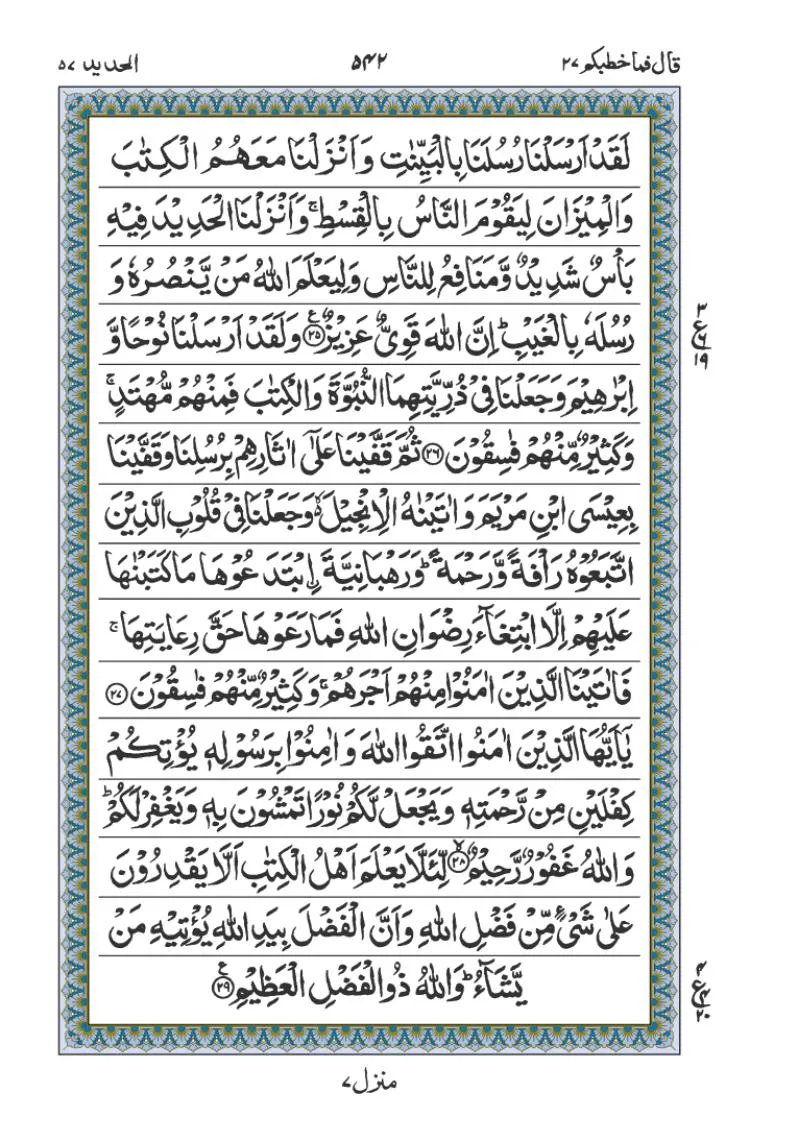 قال فما خطبكم ۲۷
۵۴۲
الحديد ۵۷
لَقَدْ اَرْسَلْنَا رُسُلَنَا بِالْبَيِّنٰتِ وَاَنْزَلْنَا مَعَهُمُ الْكِتٰبَ
وَالْمِيْزَانَ لِيَقُوْمَ النَّاسُ بِالْقِسْطِ ۚ وَاَنْزَلْنَا الْحَدِيْدَ فِيْهِ
بَاْسٌ شَدِيْدٌ وَّمَنَافِعُ لِلنَّاسِ وَلِيَعْلَمَ اللّٰهُ مَنْ يَّنْصُرُهٗ وَ
رُسُلَهٗ بِالْغَيْبِ ؕ اِنَّ اللّٰهَ قَوِيٌّ عَزِيْزٌ ۟ع ﴿۲۵﴾ وَلَقَدْ اَرْسَلْنَا نُوْحًا وَّ
اِبْرٰهِيْمَ وَجَعَلْنَا فِيْ ذُرِّيَّتِهِمَا النُّبُوَّةَ وَالْكِتٰبَ فَمِنْهُمْ مُّهْتَدٍ ۚ
وَكَثِيْرٌ مِّنْهُمْ فٰسِقُوْنَ ﴿۲۶﴾ ثُمَّ قَفَّيْنَا عَلٰۤى اٰثَارِهِمْ بِرُسُلِنَا وَقَفَّيْنَا
بِعِيْسَى ابْنِ مَرْيَمَ وَاٰتَيْنٰهُ الْاِنْجِيْلَ ۙ۬ وَجَعَلْنَا فِيْ قُلُوْبِ الَّذِيْنَ
اتَّبَعُوْهُ رَاْفَةً وَّرَحْمَةً ؕ وَرَهْبَانِيَّةَ اِ۟بْتَدَعُوْهَا مَا كَتَبْنٰهَا
عَلَيْهِمْ اِلَّا ابْتِغَآءَ رِضْوَانِ اللّٰهِ فَمَا رَعَوْهَا حَقَّ رِعَايَتِهَا ۚ
فَاٰتَيْنَا الَّذِيْنَ اٰمَنُوْا مِنْهُمْ اَجْرَهُمْ ۚ وَكَثِيْرٌ مِّنْهُمْ فٰسِقُوْنَ ﴿۲۷﴾
يٰۤاَيُّهَا الَّذِيْنَ اٰمَنُوا اتَّقُوا اللّٰهَ وَاٰمِنُوْا بِرَسُوْلِهٖ يُؤْتِكُمْ
كِفْلَيْنِ مِنْ رَّحْمَتِهٖ وَيَجْعَلْ لَّكُمْ نُوْرًا تَمْشُوْنَ بِهٖ وَيَغْفِرْ لَكُمْ ؕ
وَاللّٰهُ غَفُوْرٌ رَّحِيْمٌ ﴿۲۸﴾ۙ لِّئَلَّا يَعْلَمَ اَهْلُ الْكِتٰبِ اَلَّا يَقْدِرُوْنَ
عَلٰى شَيْءٍ مِّنْ فَضْلِ اللّٰهِ وَاَنَّ الْفَضْلَ بِيَدِ اللّٰهِ يُؤْتِيْهِ مَنْ
يَّشَآءُ ؕ وَاللّٰهُ ذُو الْفَضْلِ الْعَظِيْمِ ﴿۲۹﴾ع
۳
ع ۶
۱۹
۴
ع ۴
۲۰
منزل ۷